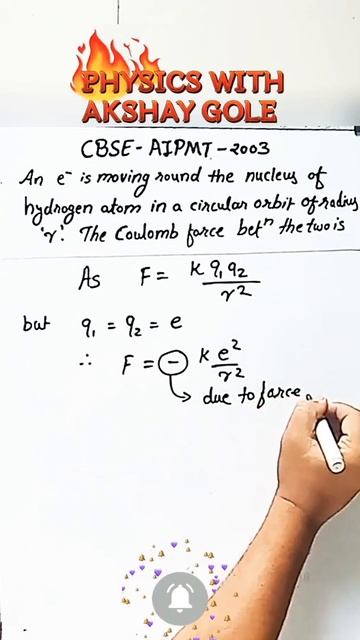 PHYSICS WITH
AKSHAY GOLE
CBSE-AIPMT-2003
An e⁻ is moving round the nucleus of
hydrogen atom in a circular orbit of radius
'r'. The Coulomb force betⁿ the two is
As F = K q₁q₂/r²
but q₁ = q₂ = e
∴ F = - K e²/r²
due to force